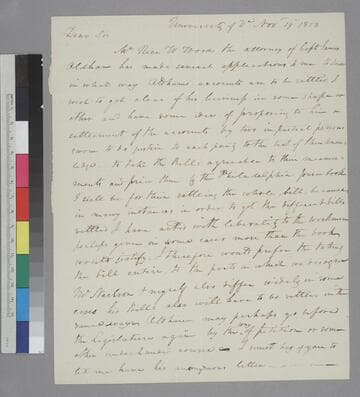 University of Va. Novr 19 1823
Dear Sir
Mr Rice W Wood the attorney of Capt James
Oldham has made several applications to me to know
in what way Oldhams accounts are to be settled I
wish to get clear of his lawsuit in some shape or
other and have some idea of proposing to him a
settlement of the accounts by two impartial persons
sworn to do justice to each party to the best of their know-
ledge to take the Bills agreeable to their measure-
ments and price them by the Philadelphia price book
I shall be for their settling the whole bill because
in many instances in order to get the different bills
settled I have acted with liberality to the workmen
perhaps given in some cases more than the book
would justify. I therefore would prefer the taking
the bill entire to the parts in which we disagree
Mr Neilson & myself also differ widely in some
cases his Bills also will have to be settled in the
same way Oldham may perhaps go before
the Legislature again by the way of petition or some
other unbecoming course I must beg of you to
let me have his anonymous letter